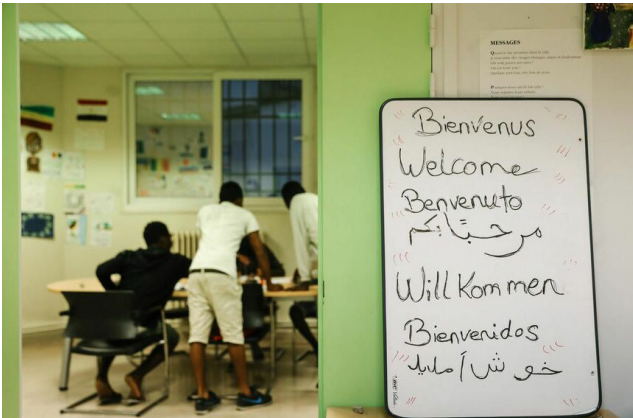 MESSAGES
Bienvenus
Welcome
Benvenuto
مرحبًا بكم
Willkommen
Bienvenidos
خوش آمدید